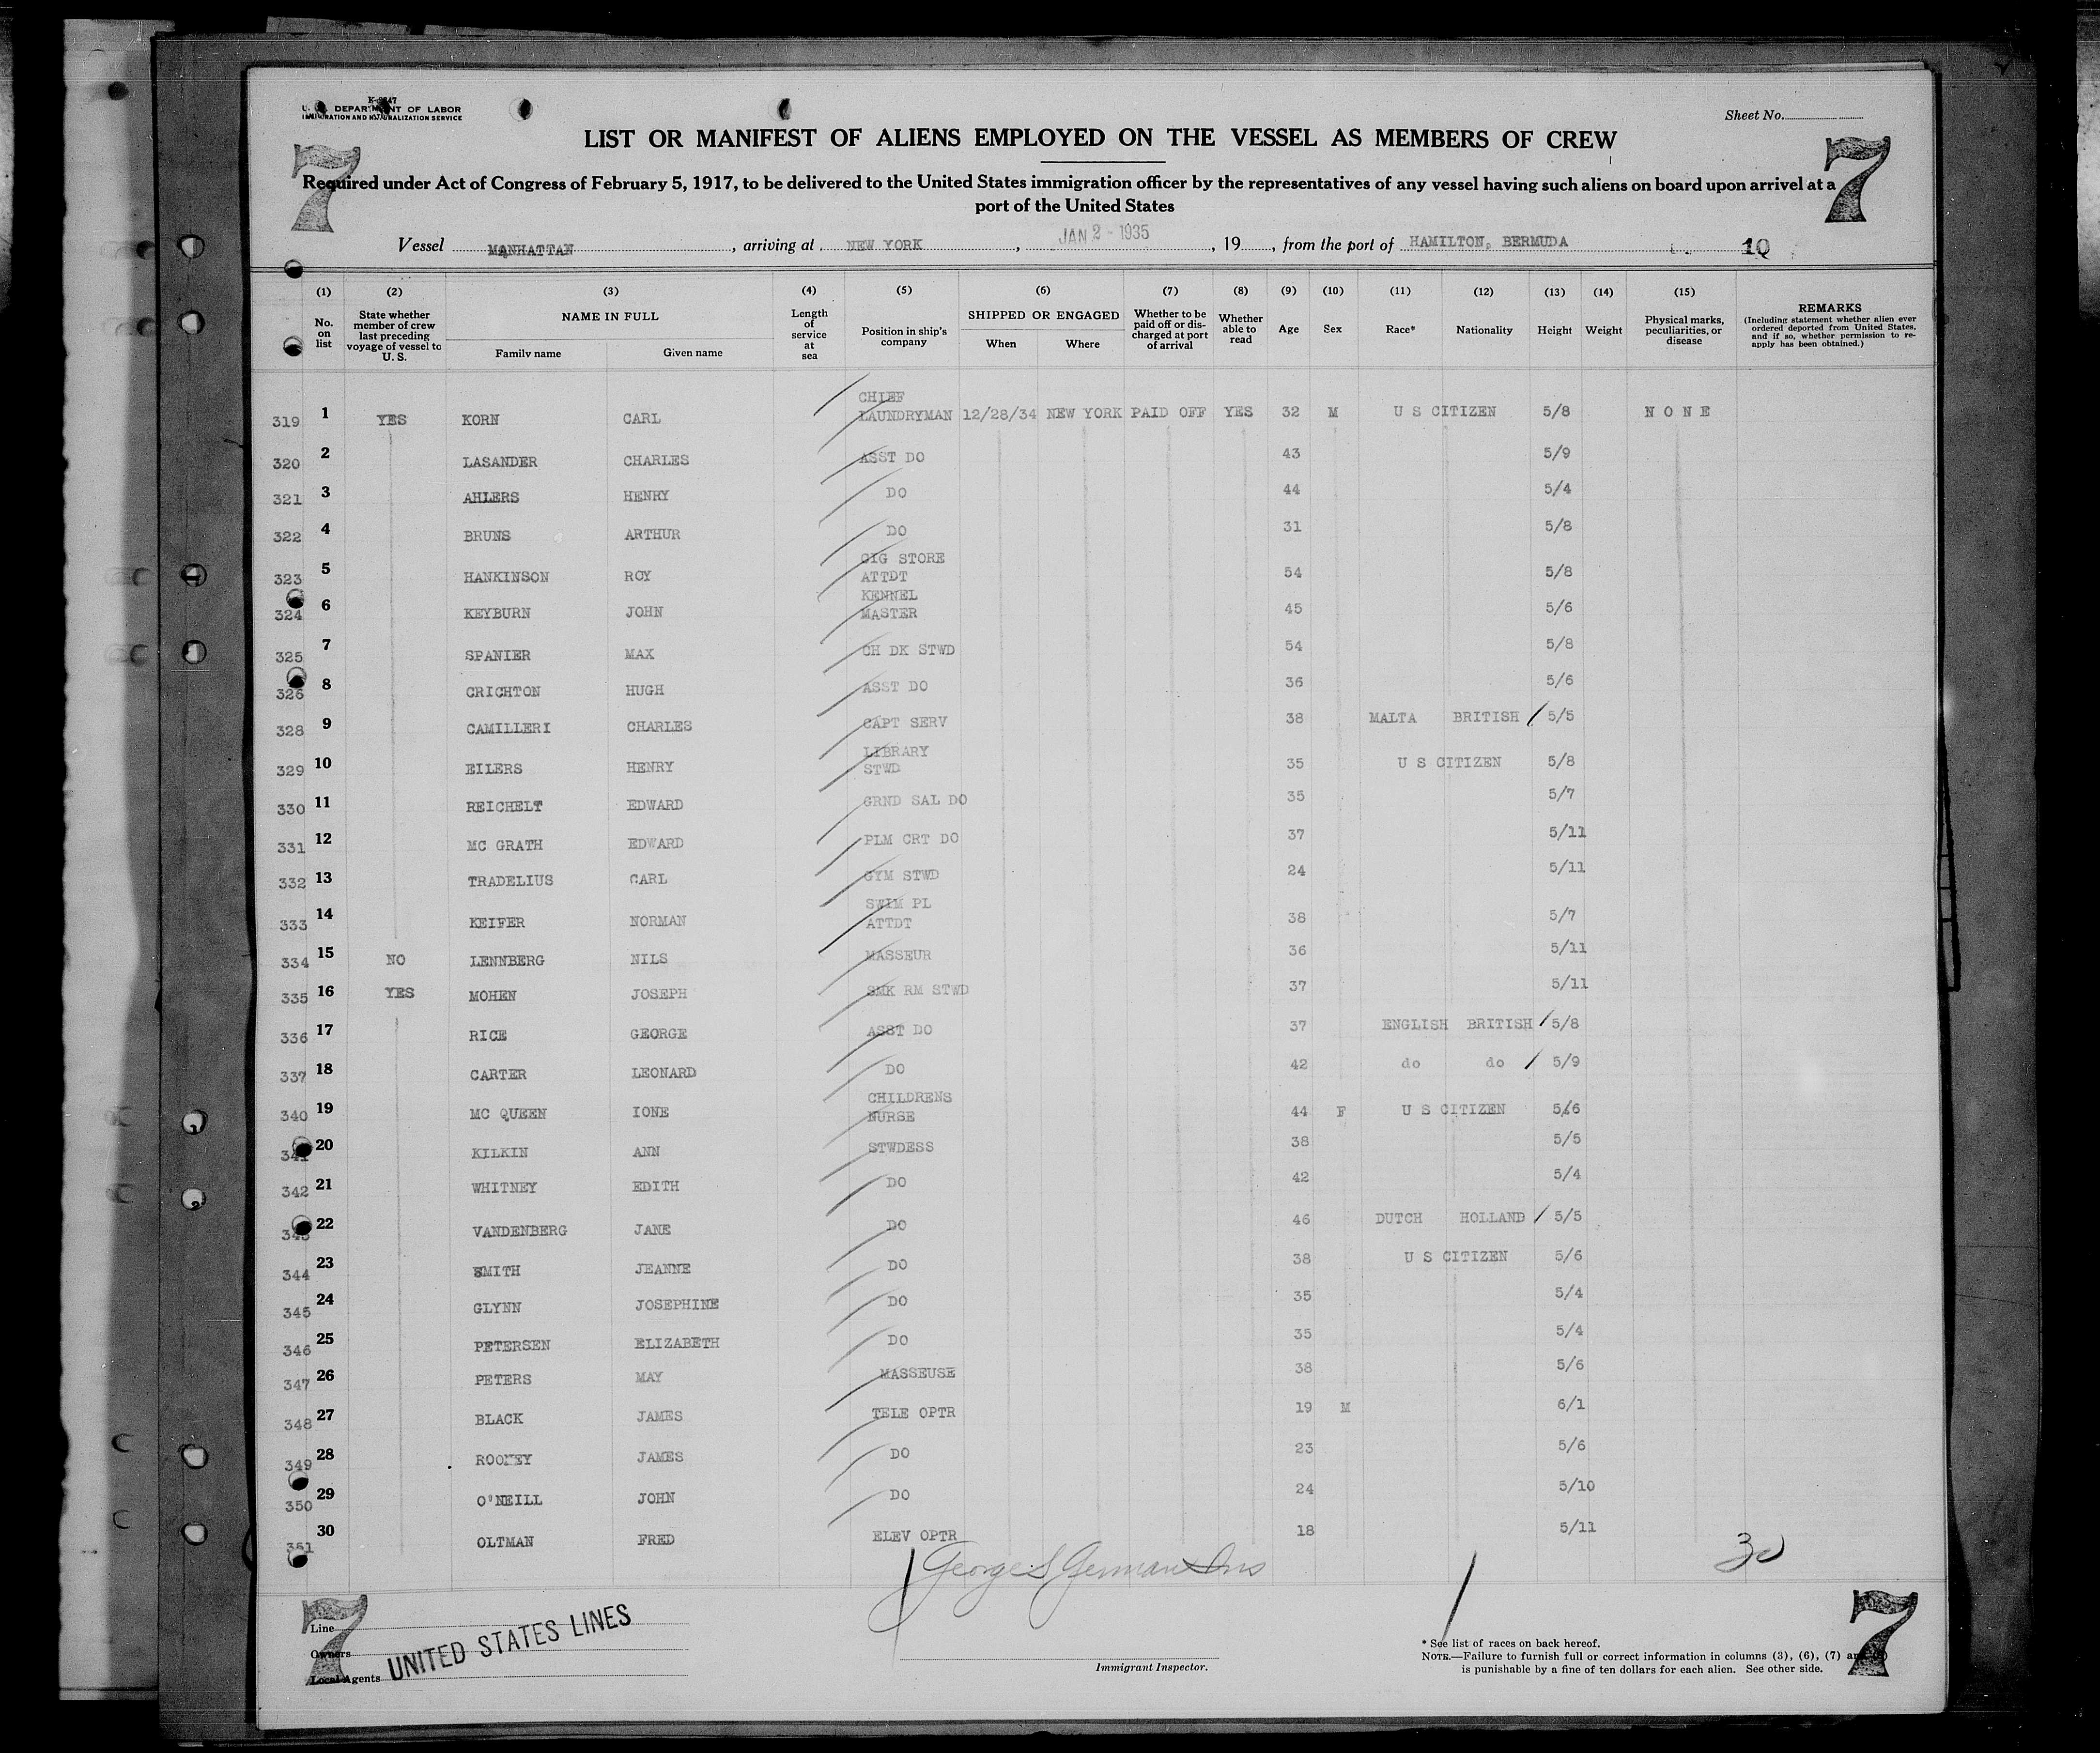 K-2247
U. S. DEPARTMENT OF LABOR
IMMIGRATION AND NATURALIZATION SERVICE
Sheet No.
7
7
LIST OR MANIFEST OF ALIENS EMPLOYED ON THE VESSEL AS MEMBERS OF CREW
Required under Act of Congress of February 5, 1917, to be delivered to the United States immigration officer by the representatives of any vessel having such aliens on board upon arrival at a
port of the United States
Vessel MANHATTAN, arriving at NEW YORK, JAN 2 - 1935, 19, from the port of HAMILTON, BERMUDA 10
(1) (2) (3) (4) (5) (6) (7) (8) (9) (10) (11) (12) (13) (14) (15)
No. on list State whether member of crew last preceding voyage of vessel to U. S. NAME IN FULL Family name Given name Length of service at sea Position in ship's company SHIPPED OR ENGAGED When Where Whether to be paid off or discharged at port of arrival Whether able to read Age Sex Race* Nationality Height Weight Physical marks, peculiarities, or disease REMARKS (Including statement whether alien ever ordered deported from United States, and if so, whether permission to re-apply has been obtained.)
319 1 YES KORN CARL CHIEF LAUNDRYMAN 12/28/34 NEW YORK PAID OFF YES 32 M U S CITIZEN 5/8 N O N E
320 2 LASANDER CHARLES ASST DO 43 5/9
321 3 AHLERS HENRY DO 44 5/4
322 4 BRUNS ARTHUR DO 31 5/8
323 5 HANKINSON ROY CIG STORE ATTDT 54 5/8
324 6 KEYBURN JOHN KENNEL MASTER 45 5/6
325 7 SPANIER MAX CH DK STWD 54 5/8
326 8 CRICHTON HUGH ASST DO 36 5/6
328 9 CAMILLERI CHARLES CAPT SERV 38 MALTA BRITISH 5/5
329 10 EILERS HENRY LIBRARY STWD 35 U S CITIZEN 5/8
330 11 REICHELT EDWARD GRND SAL DO 35 5/7
331 12 MC GRATH EDWARD PLM CRT DO 37 5/11
332 13 TRADELIUS CARL GYM STWD 24 5/11
333 14 KEIFER NORMAN SWIM PL ATTDT 38 5/7
334 15 NO LENNBERG NILS MASSEUR 36 5/11
335 16 YES MOHEN JOSEPH SMK RM STWD 37 5/11
336 17 RICE GEORGE ASST DO 37 ENGLISH BRITISH 5/8
337 18 CARTER LEONARD DO 42 do do 5/9
340 19 MC QUEEN IONE CHILDRENS NURSE 44 F U S CITIZEN 5/6
341 20 KILKIN ANN STWDESS 38 5/5
342 21 WHITNEY EDITH DO 42 5/4
343 22 VANDENBERG JANE DO 46 DUTCH HOLLAND 5/5
344 23 SMITH JEANNE DO 38 U S CITIZEN 5/6
345 24 GLYNN JOSEPHINE DO 35 5/4
346 25 PETERSEN ELIZABETH DO 35 5/4
347 26 PETERS MAY MASSEUSE 38 5/6
348 27 BLACK JAMES TELE OPTR 19 M 6/1
349 28 ROONEY JAMES DO 23 5/6
350 29 O'NEILL JOHN DO 24 5/10
351 30 OLTMAN FRED ELEV OPTR 18 5/11
30
George S German Ins
7
7
Line
Owners
Local Agents
UNITED STATES LINES
Immigrant Inspector.
* See list of races on back hereof.
NOTE.—Failure to furnish full or correct information in columns (3), (6), (7)
is punishable by a fine of ten dollars for each alien. See other side.